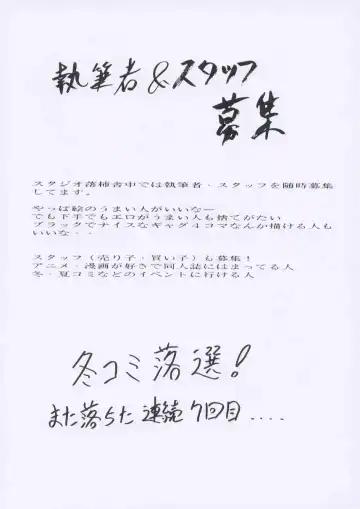 執筆者&スタッフ
募集
スタジオ落柿舎中では執筆者・スタッフを随時募集
してます。
やっぱ絵のうまい人がいいなー
でも下手でもエロがうまい人も捨てがたい
ブラックでナイスなギャグ4コマなんか描ける人も
いいな・・
スタッフ(売り子・買い子)も募集!
アニメ・漫画が好きで同人誌にはまってる人
冬・夏コミなどのイベントに行ける人
冬コミ落選!
また落ちた連続7回目....